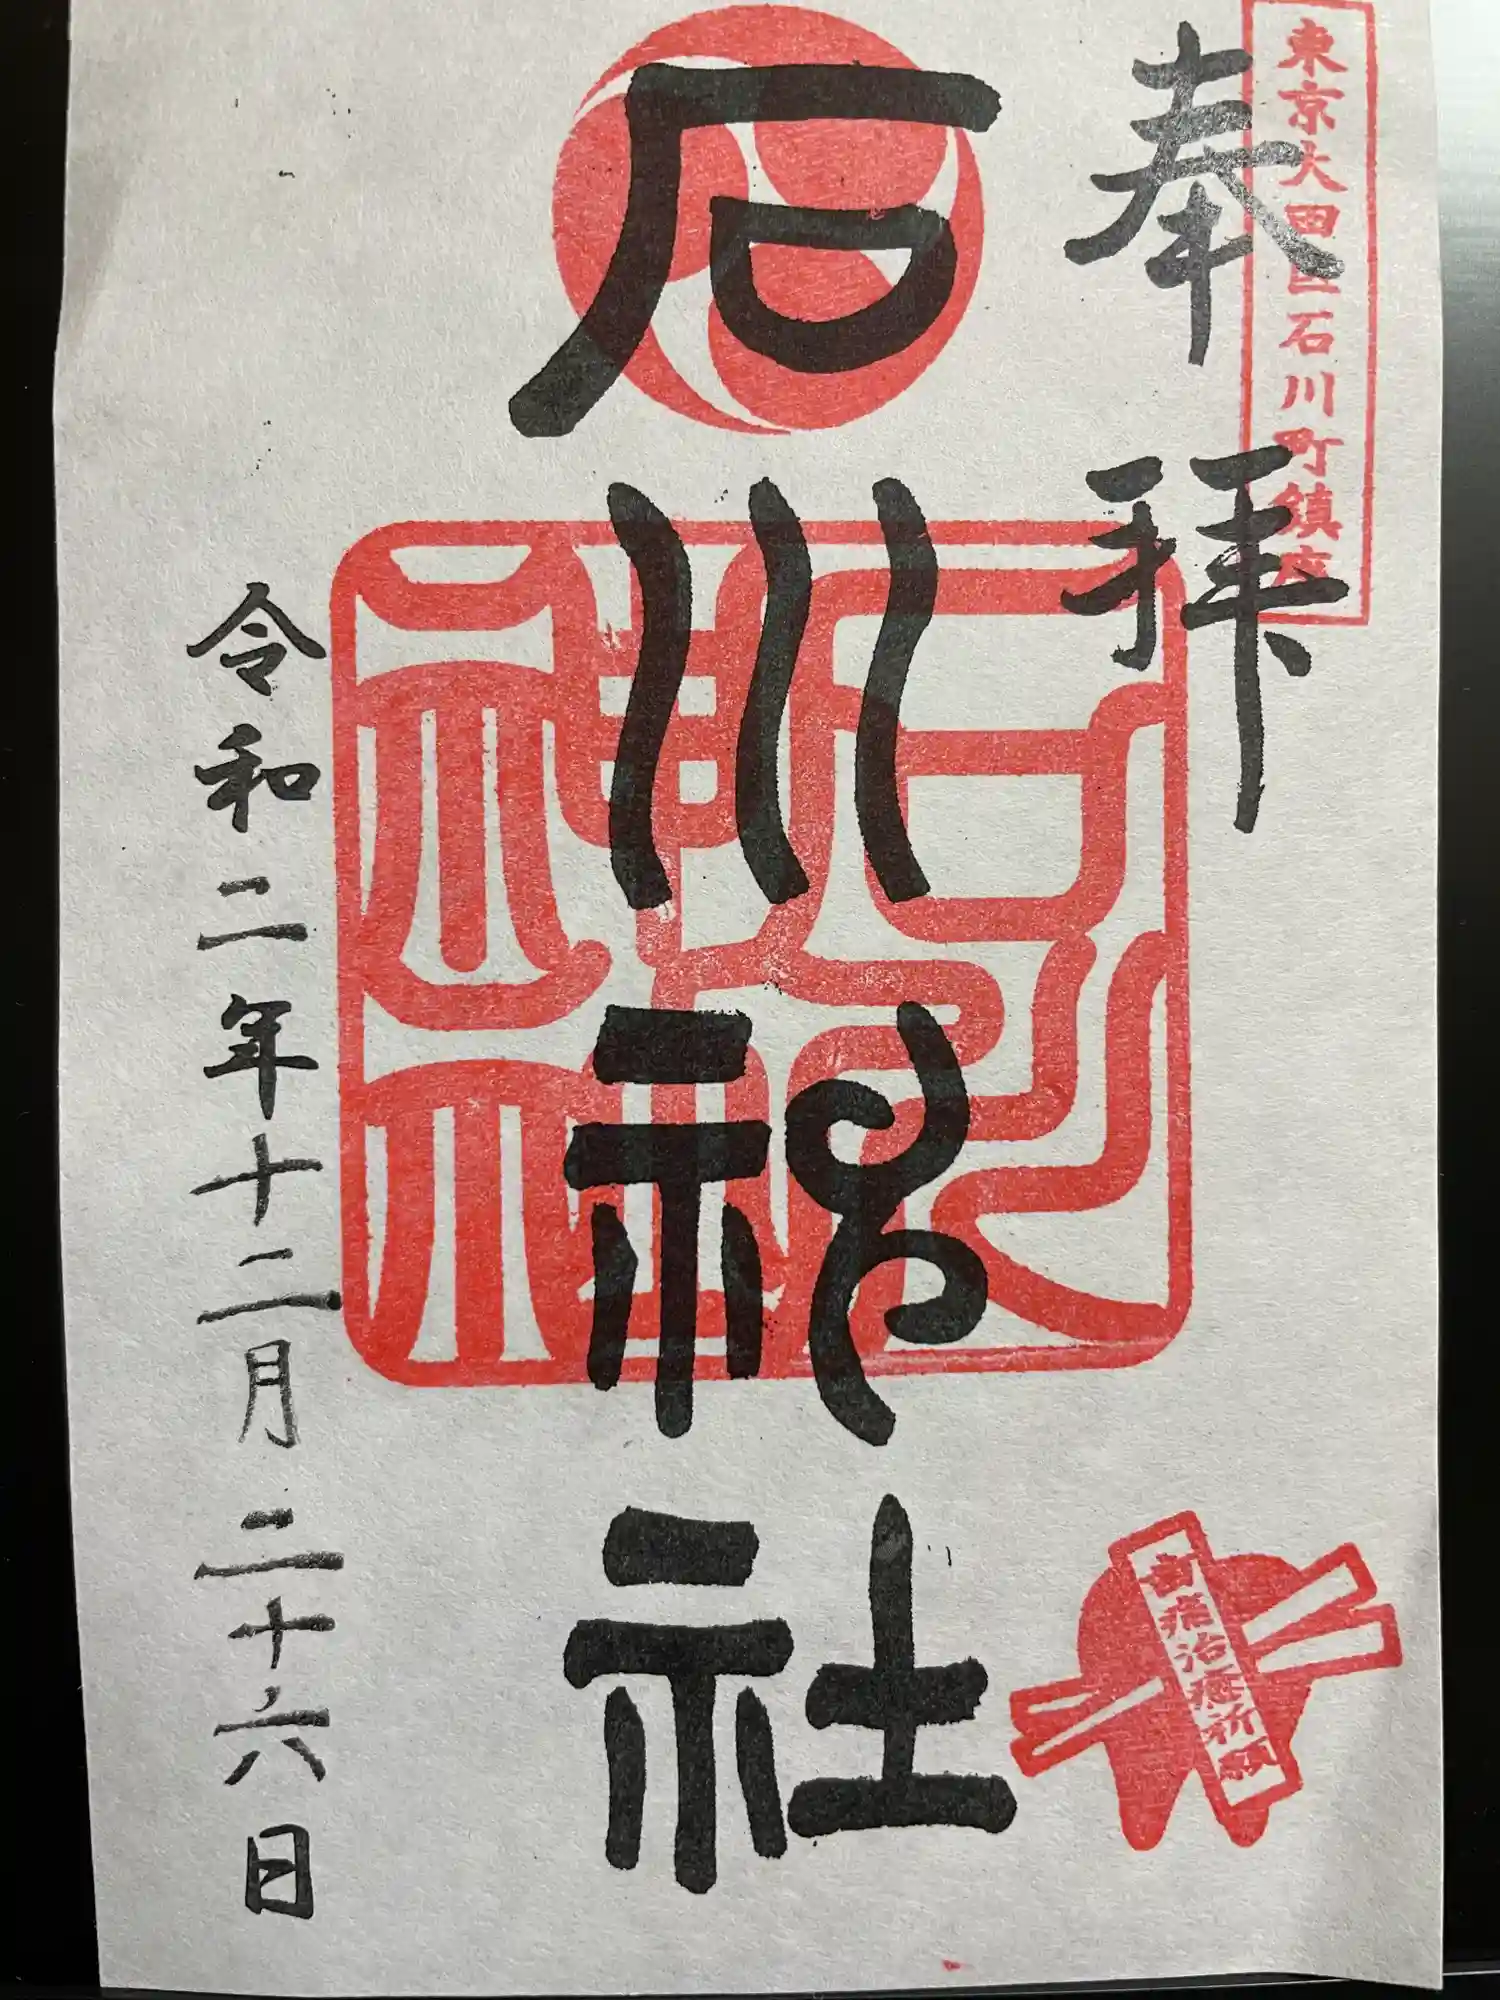 東京大田区石川町鎮座
奉拝
石川神社
石川神社
歯痛治癒祈願
令和二年十二月二十六日